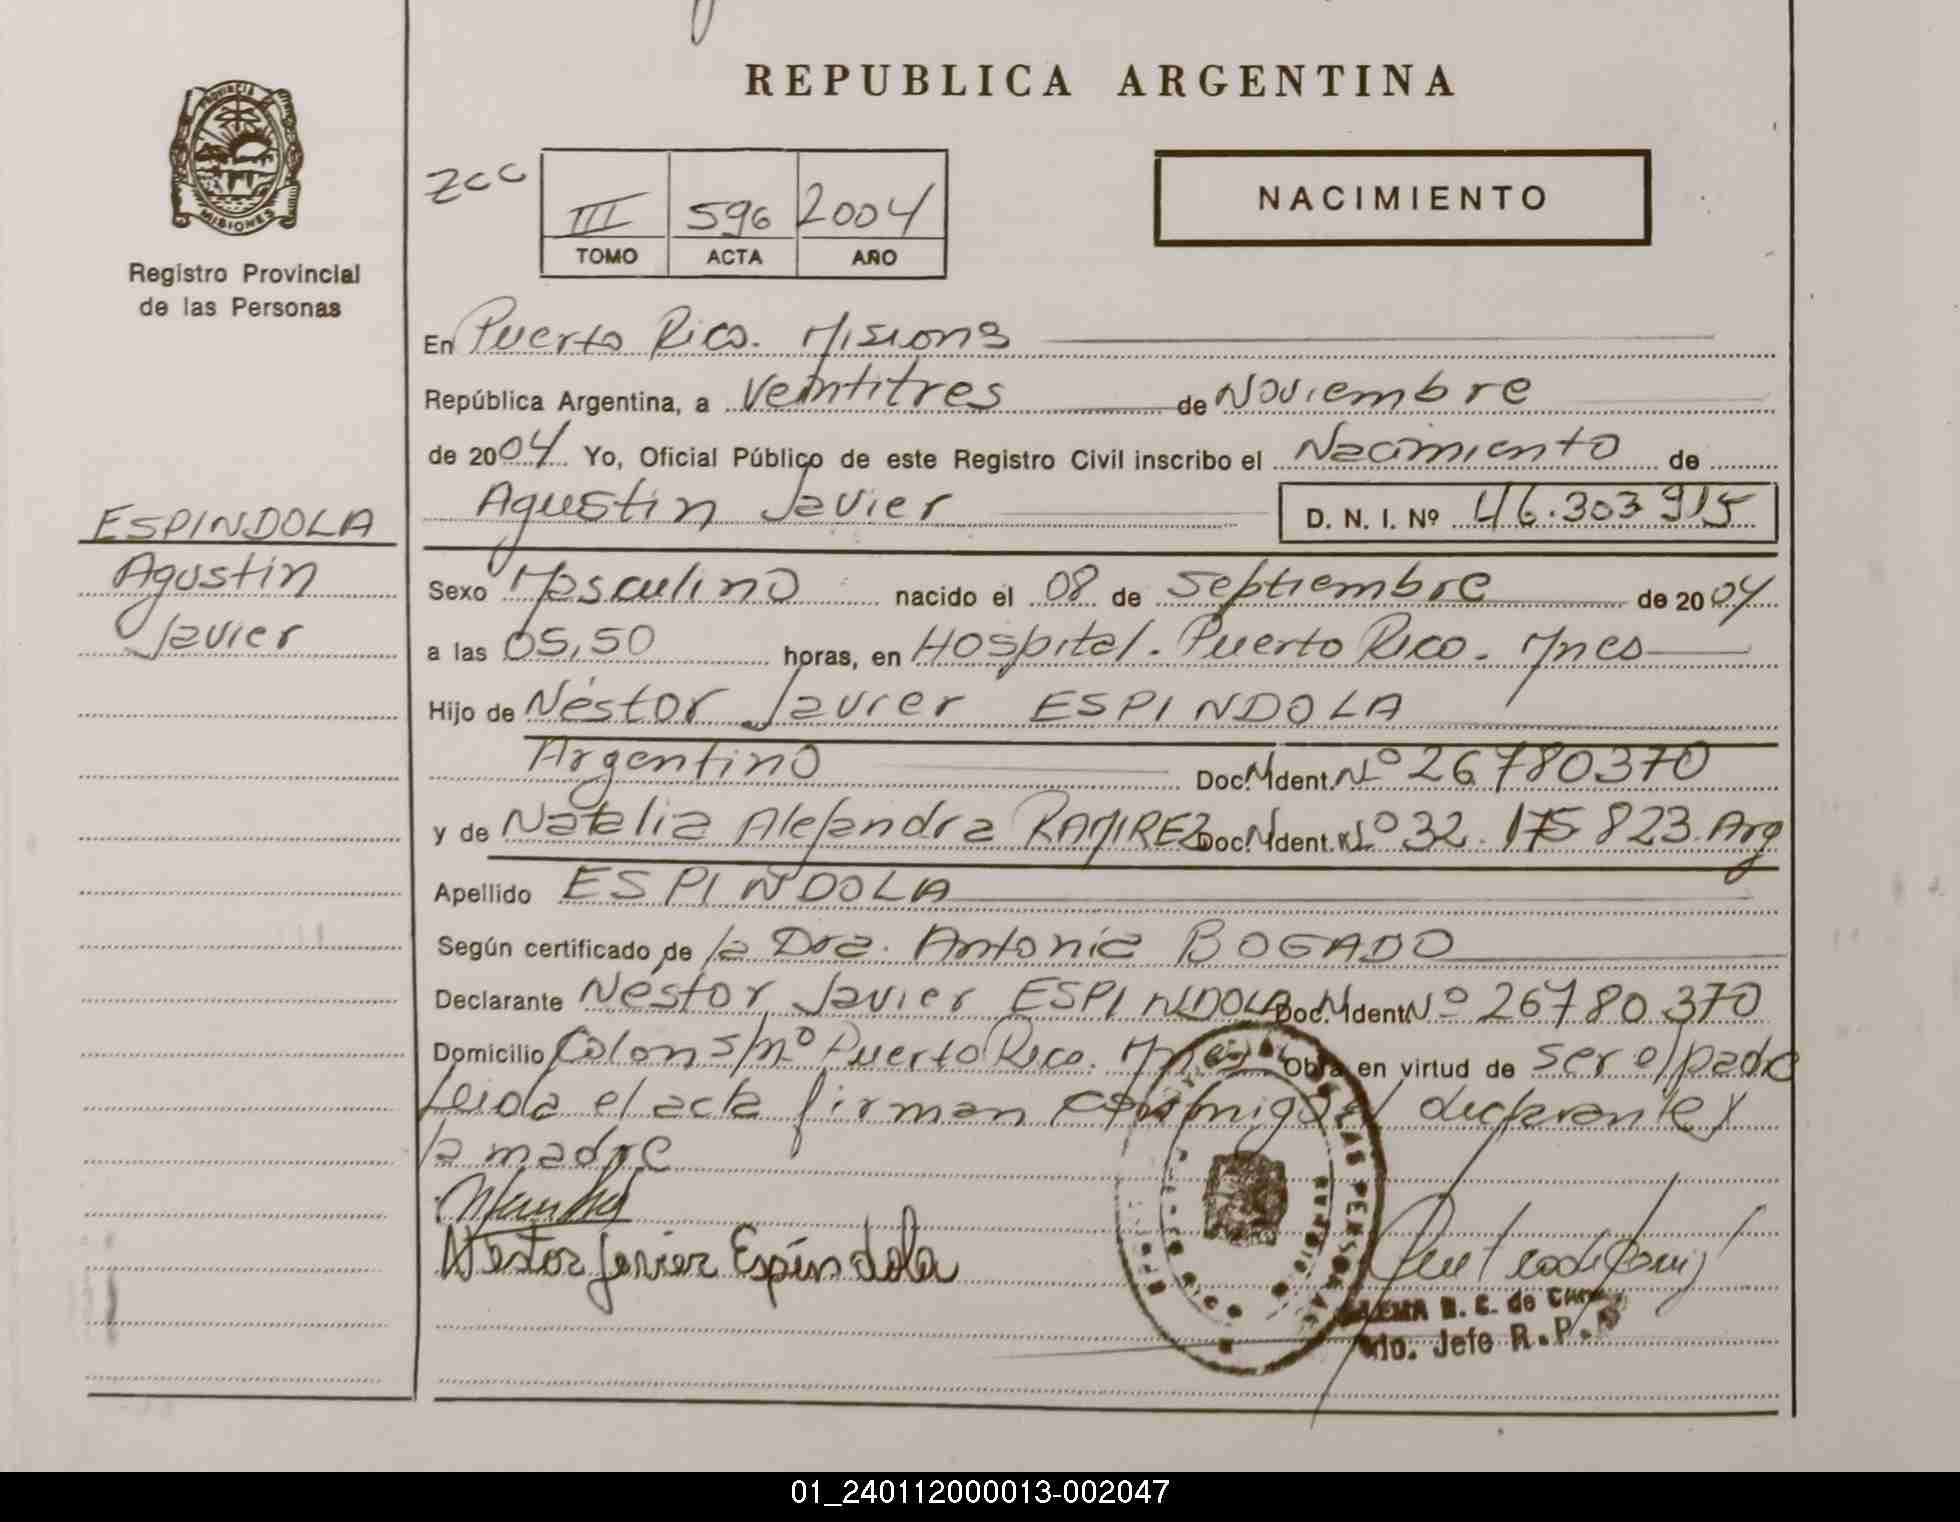 REPUBLICA ARGENTINA
PROVINCIA DE
MISIONES
Registro Provincial
de las Personas
zcc
III 596 2004
TOMO ACTA AÑO
NACIMIENTO
ESPINDOLA
Agustin
Javier
En Puerto Rico. Misiones
República Argentina, a Veintitres de Noviembre
de 2004 Yo, Oficial Público de este Registro Civil inscribo el Nacimiento de
Agustin Javier D. N. I. Nº 46.303 915
Sexo Masculino nacido el 08 de Septiembre de 2004
a las 05,50 horas, en Hospital. Puerto Rico. Mnes
Hijo de Néstor Javier ESPINDOLA
Argentino Doc. N Ident. Nº 26780370
y de Natalia Alejandra RAMIREZ Doc. N Ident. Nº 32.175 823. Arg
Apellido ESPINDOLA
Según certificado de la Dra. Antonia BOGADO
Declarante Nestor Javier ESPINDOLA Doc. N Ident. Nº 26780370
Domicilio Colon s/nº Puerto Rico. Mnes Obra en virtud de ser el padre
Leida el acta firman conmigo el declarante y
la madre
Nestor Javier Espíndola
LAS PERSONAS
B. C. de
Jefe R. P.
01_240112000013-002047